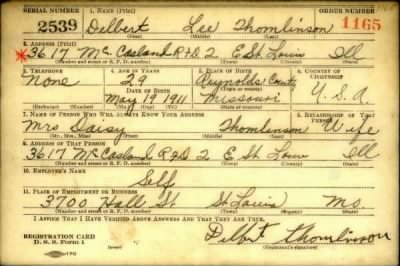 SERIAL NUMBER 1. NAME (Print) ORDER NUMBER
2539 Delbert Lee Thomlinson 1165
2. ADDRESS (Print)
3617 McCasland R.F.D. 2 E St. Louis Ill
(Number and street or R. F. D. number) (Town) (County) (State)
3. TELEPHONE 4. AGE IN YEARS 5. PLACE OF BIRTH 6. COUNTRY OF CITIZENSHIP
None 29 Reynolds County
DATE OF BIRTH (Town or county)
May 19 1911 Missouri U.S.A
(Exchange) (Number) (Mo.) (Day) (Yr.) (State or country)
7. NAME OF PERSON WHO WILL ALWAYS KNOW YOUR ADDRESS 8. RELATIONSHIP OF THAT PERSON
Mrs Daisy Thomlinson Wife
(Mr., Mrs., Miss) (First) (Middle) (Last)
9. ADDRESS OF THAT PERSON
3617 McCasland R.F.D 2 E St. Louis Ill
(Number and street or R. F. D. number) (Town) (County) (State)
10. EMPLOYER'S NAME
Self
11. PLACE OF EMPLOYMENT OR BUSINESS
3700 Hall St St Louis Mo.
(Number and street or R. F. D. number) (Town) (County) (State)
I AFFIRM THAT I HAVE VERIFIED ABOVE ANSWERS AND THAT THEY ARE TRUE.
REGISTRATION CARD
D. S. S. Form 1 Delbert Thomlinson
(Registrant's signature)